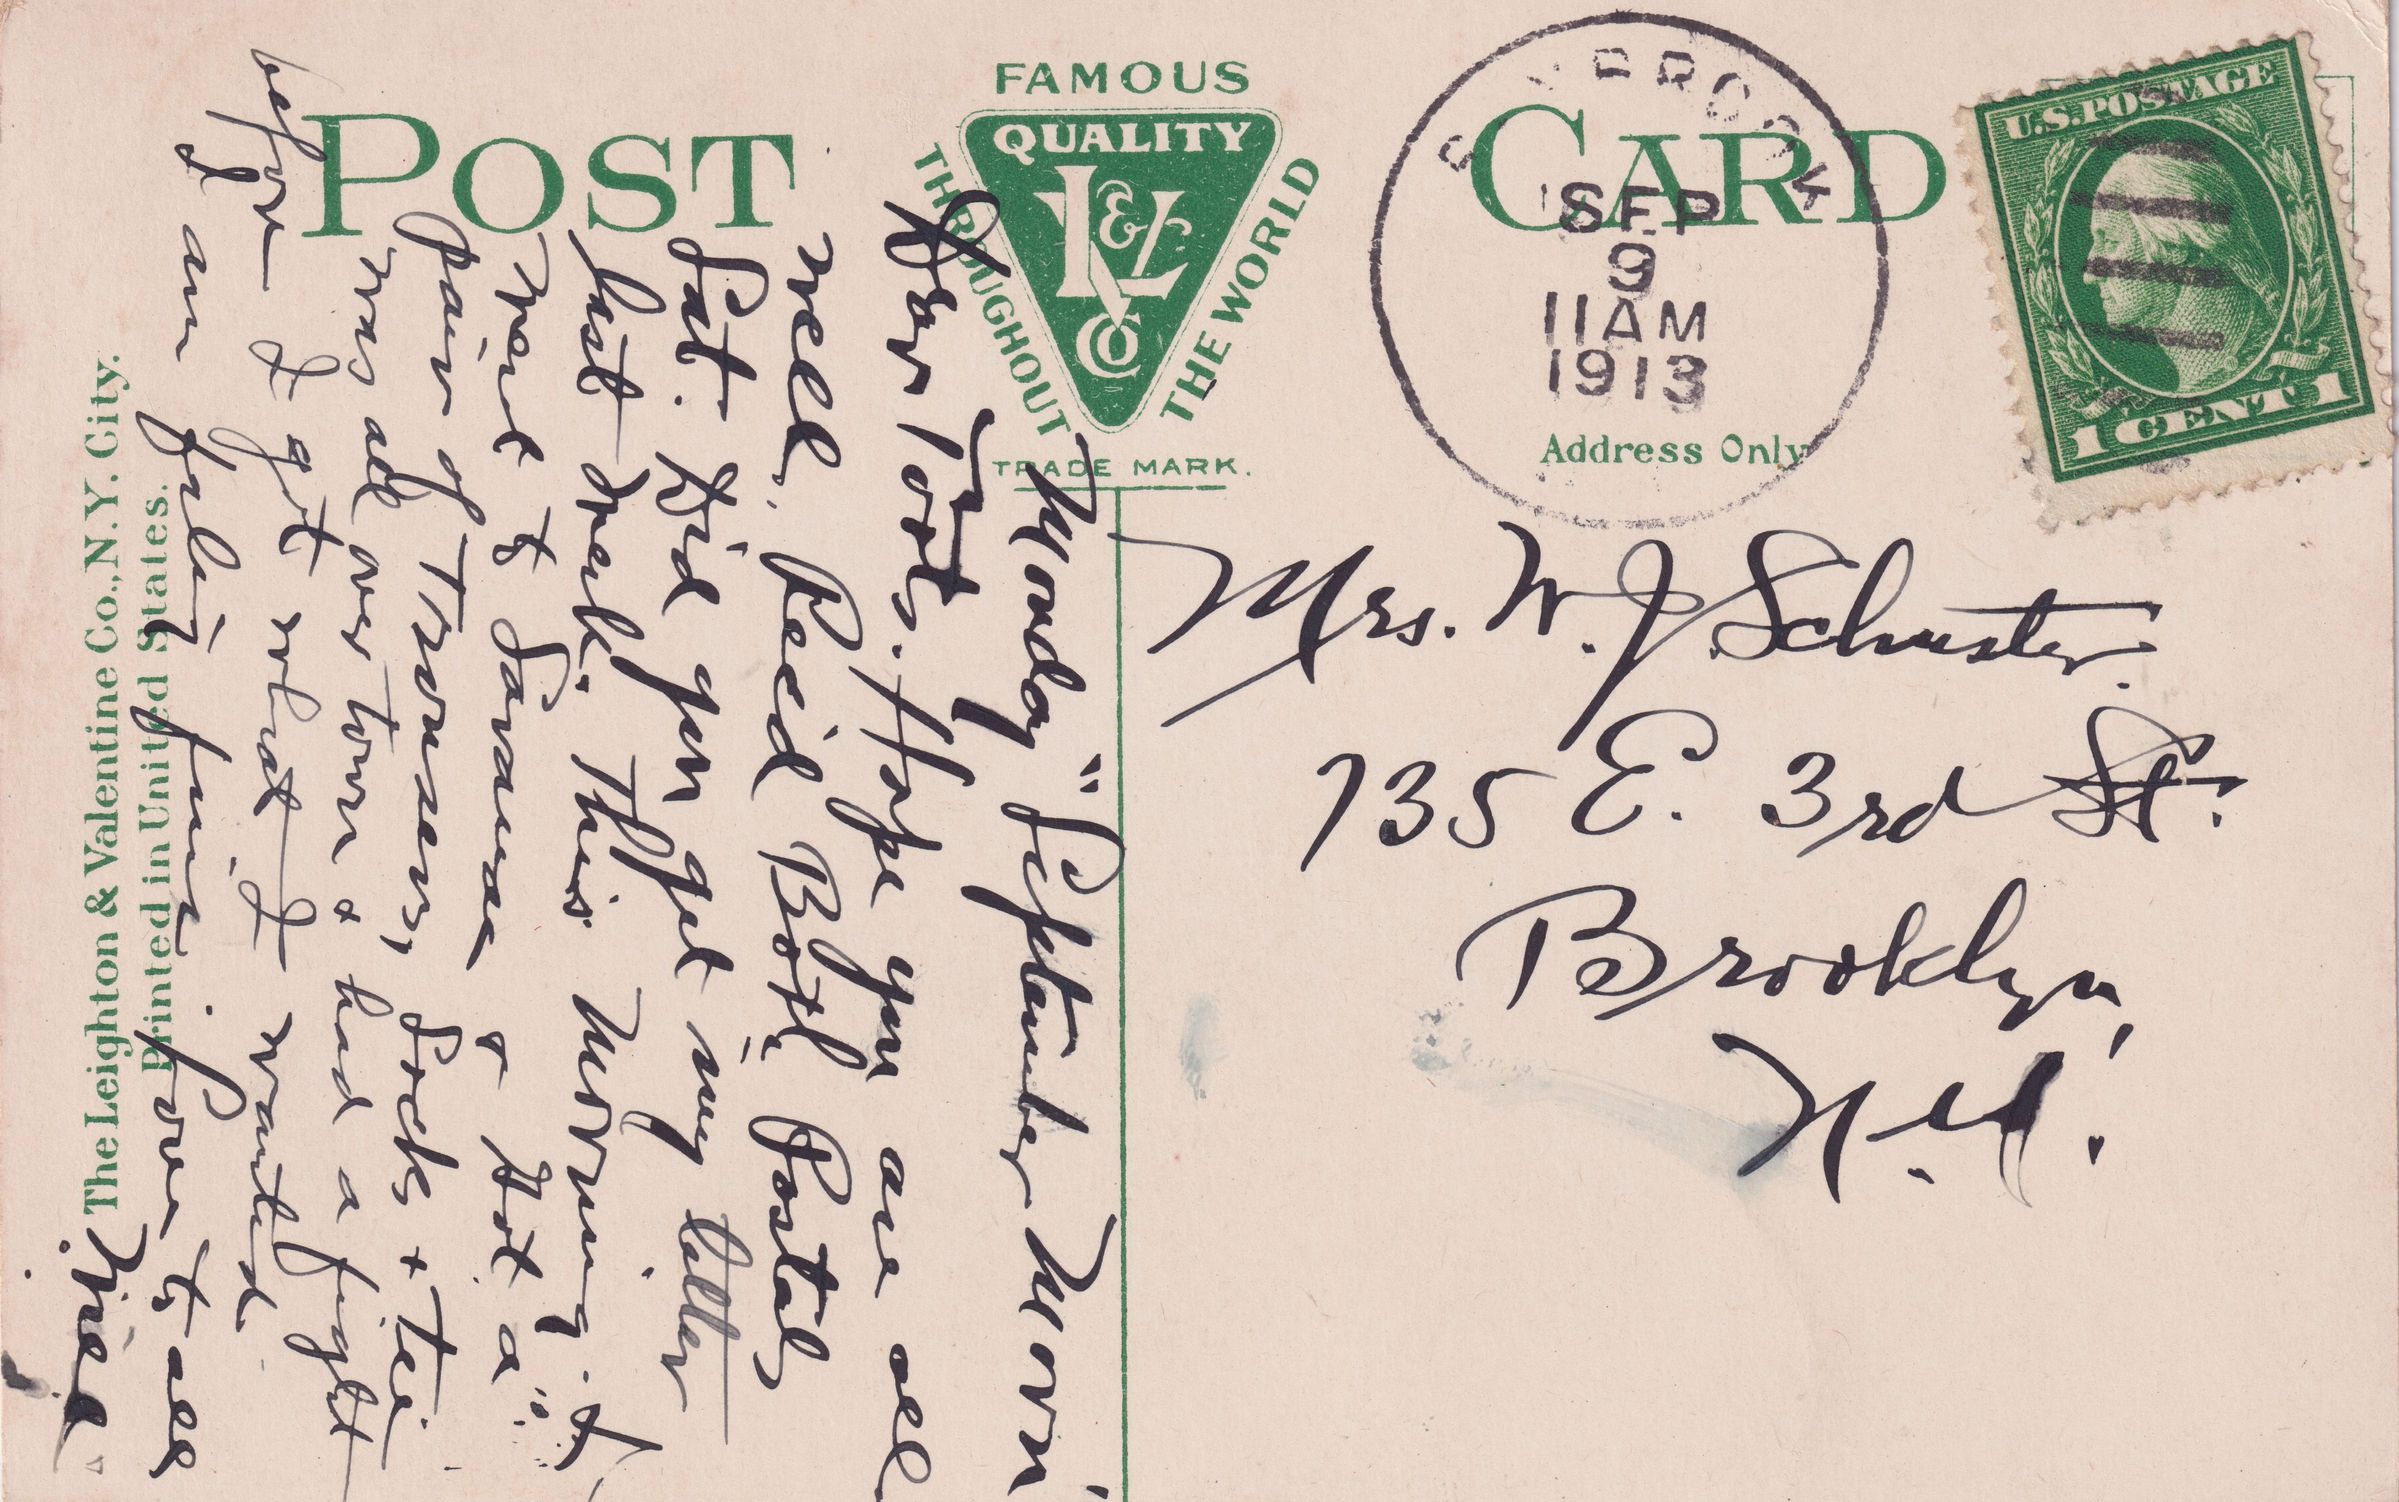 POST CARD
FAMOUS
QUALITY
THROUGHOUT THE WORLD
L&V Co
TRADE MARK.
SEP
9
11 AM
1913
U.S. POSTAGE
1 CENT 1
Address Only
Mrs. W. J. Schuster.
735 E. 3rd St.
Brooklyn,
N.Y.
"Monday" September Morn'
Dear Toots. Hope you are all
well. Rec'd Both Postals
Sat. Did you get my letter
last week. This Morning I
went to & Got a
pair of Trousers, Socks & Tie
was all over town & had a fight
before I got what I wanted
I am feeling fine. Love to all
The Leighton & Valentine Co., N.Y. City.
Printed in United States.